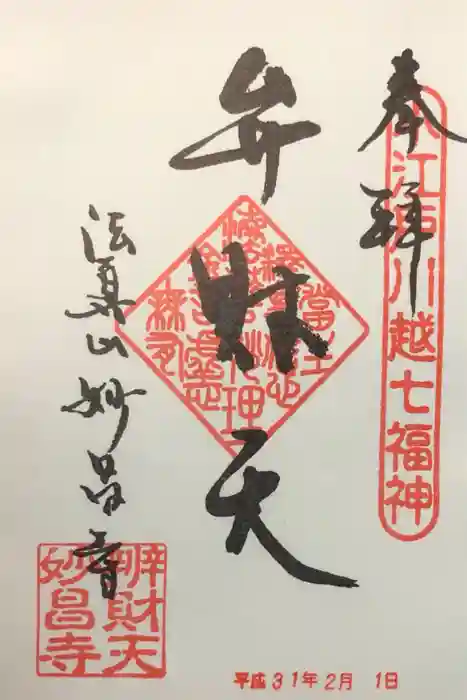 奉拝
小江戸川越七福神
弁財天
法眞山妙昌寺
辨財天
妙昌寺
平成31年2月 1日